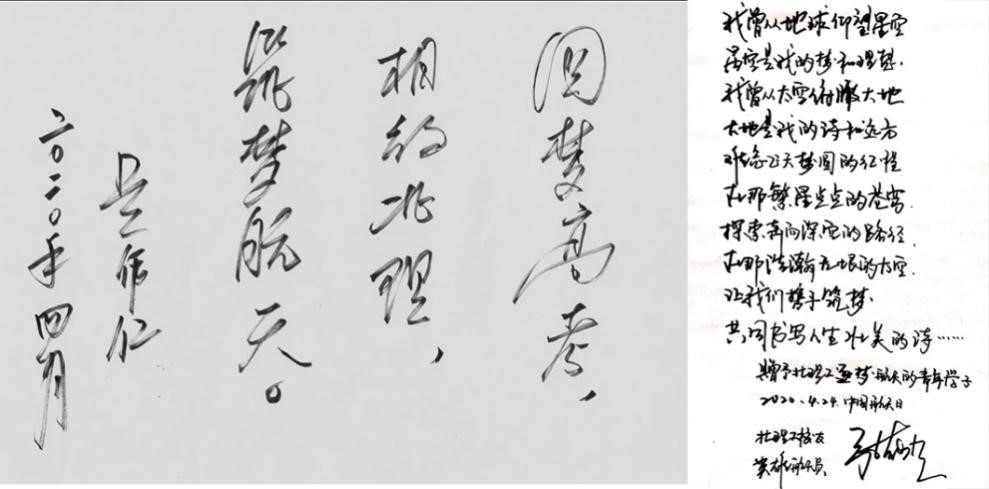 圆梦高考，
相约北理，
筑梦航天。
吴伟仁
二〇二〇年四月
我曾从地球仰望星空
星空是我的梦和理想.
我曾从太空俯瞰大地
大地是我的诗和远方
难忘飞天梦圆的征程
在那繁星点点的苍穹.
探索奔向深空的路径.
在那浩瀚无垠的太空.
让我们携手筑梦.
共同书写人生壮美的诗……
赠予北理工逐梦航天的青年学子
2020.4.24.中国航天日
北理工校友
英雄航天员